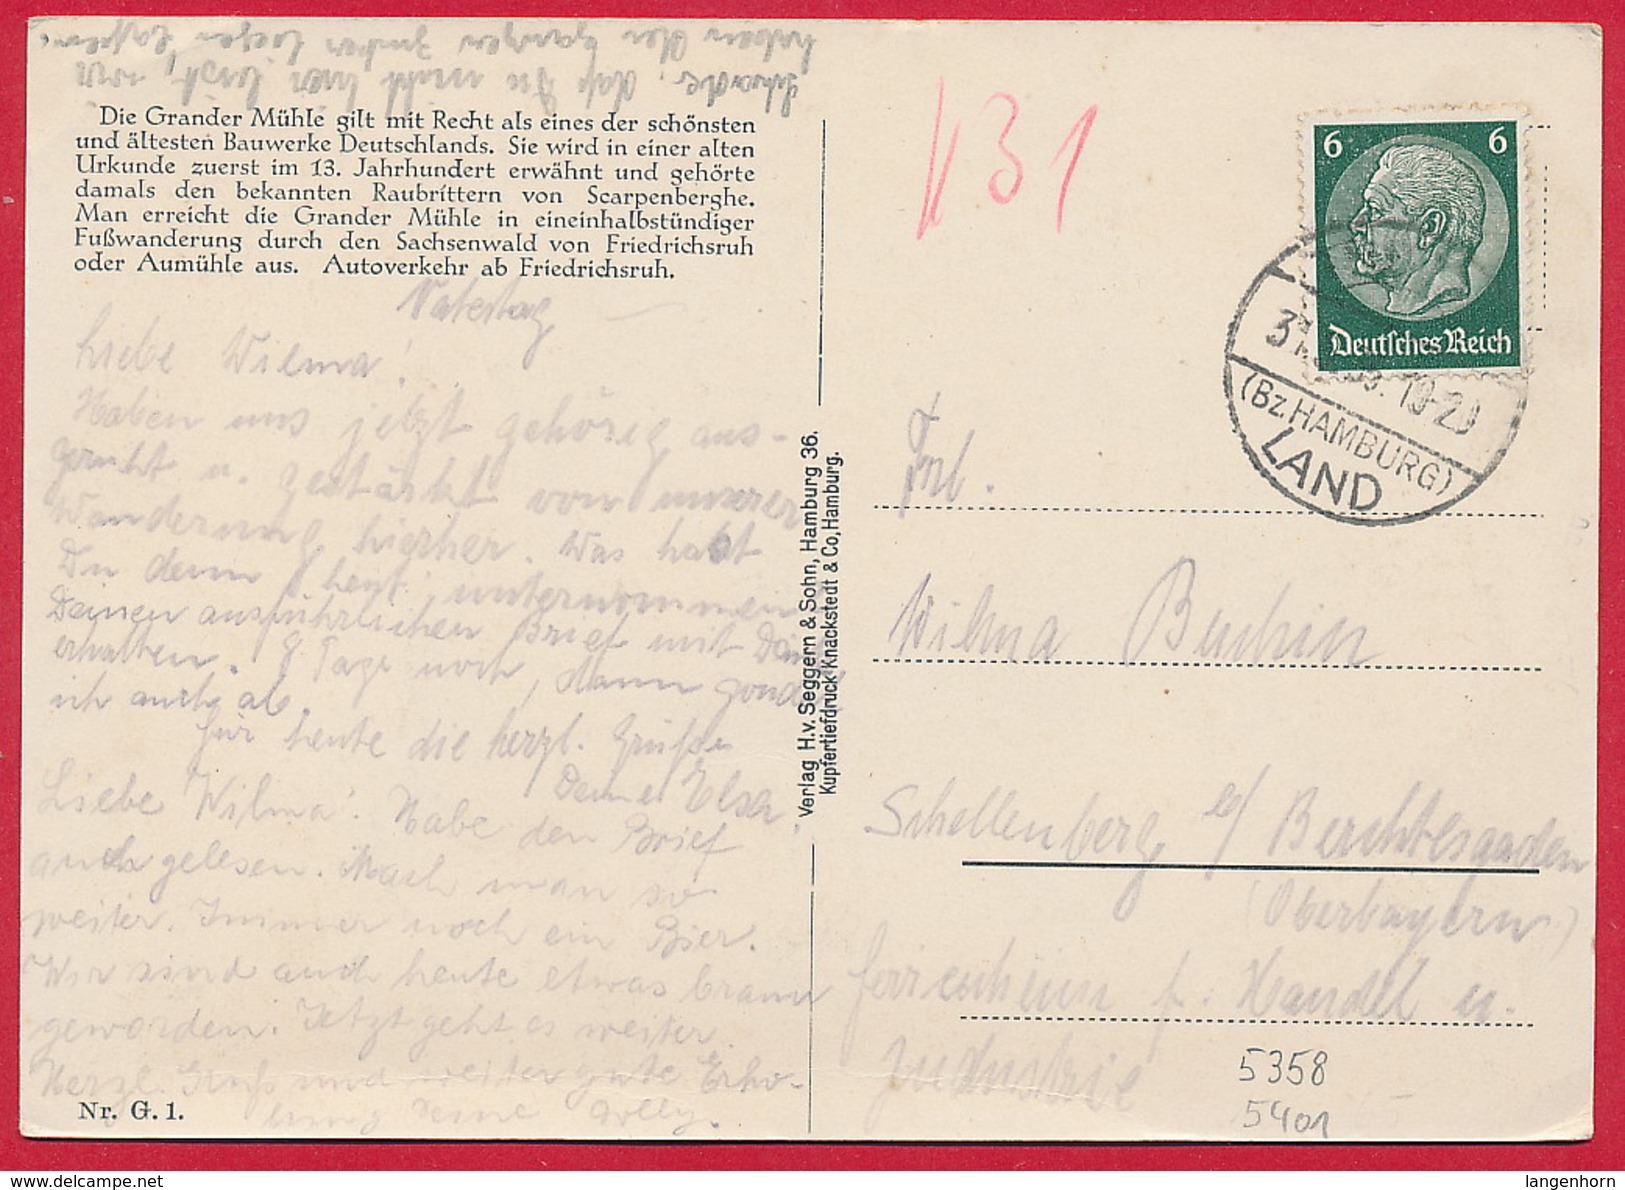 schade, daß Du nicht hier bist, wir
haben den ganzen
Die Grander Mühle gilt mit Recht als eines der schönsten
und ältesten Bauwerke Deutschlands. Sie wird in einer alten
Urkunde zuerst im 13. Jahrhundert erwähnt und gehörte
damals den bekannten Raubrittern von Scarpenberghe.
Man erreicht die Grander Mühle in eineinhalbstündiger
Fußwanderung durch den Sachsenwald von Friedrichsruh
oder Aumühle aus. Autoverkehr ab Friedrichsruh.
Vatertag
Liebe Wilma!
Haben uns jetzt gehörig aus-
geruht u. gestärkt von unserer
Wanderung hierher. Was habt
Du denn heut unternommen
Deinen ausführlichen Brief mit Dank
erhalten. 8 Tage noch, dann
ich auch ab.
Für heute die herzl. Grüße
Deine Elser.
Liebe Wilma! Habe den Brief
auch gelesen. Mach man so
weiter. Immer noch ein Bier.
Wir sind auch heute etwas braun
geworden. Jetzt geht es weiter.
Herzl. Gruß und weiter gute Erho-
lung Deine Dolly.
Nr. G. 1.
Verlag H. v. Seggern & Sohn, Hamburg 36.
Kupfertiefdruck Knackstedt & Co, Hamburg.
131
6 6
Deutsches Reich
19-20
(Bz. HAMBURG)
LAND
Frl.
Wilma Buchin
Schellenberg b/ Berchtesgaden
(Oberbayern)
Ferienheim f. Handel u.
Industrie
5358
5401
www.delcampe.net
langenhorn